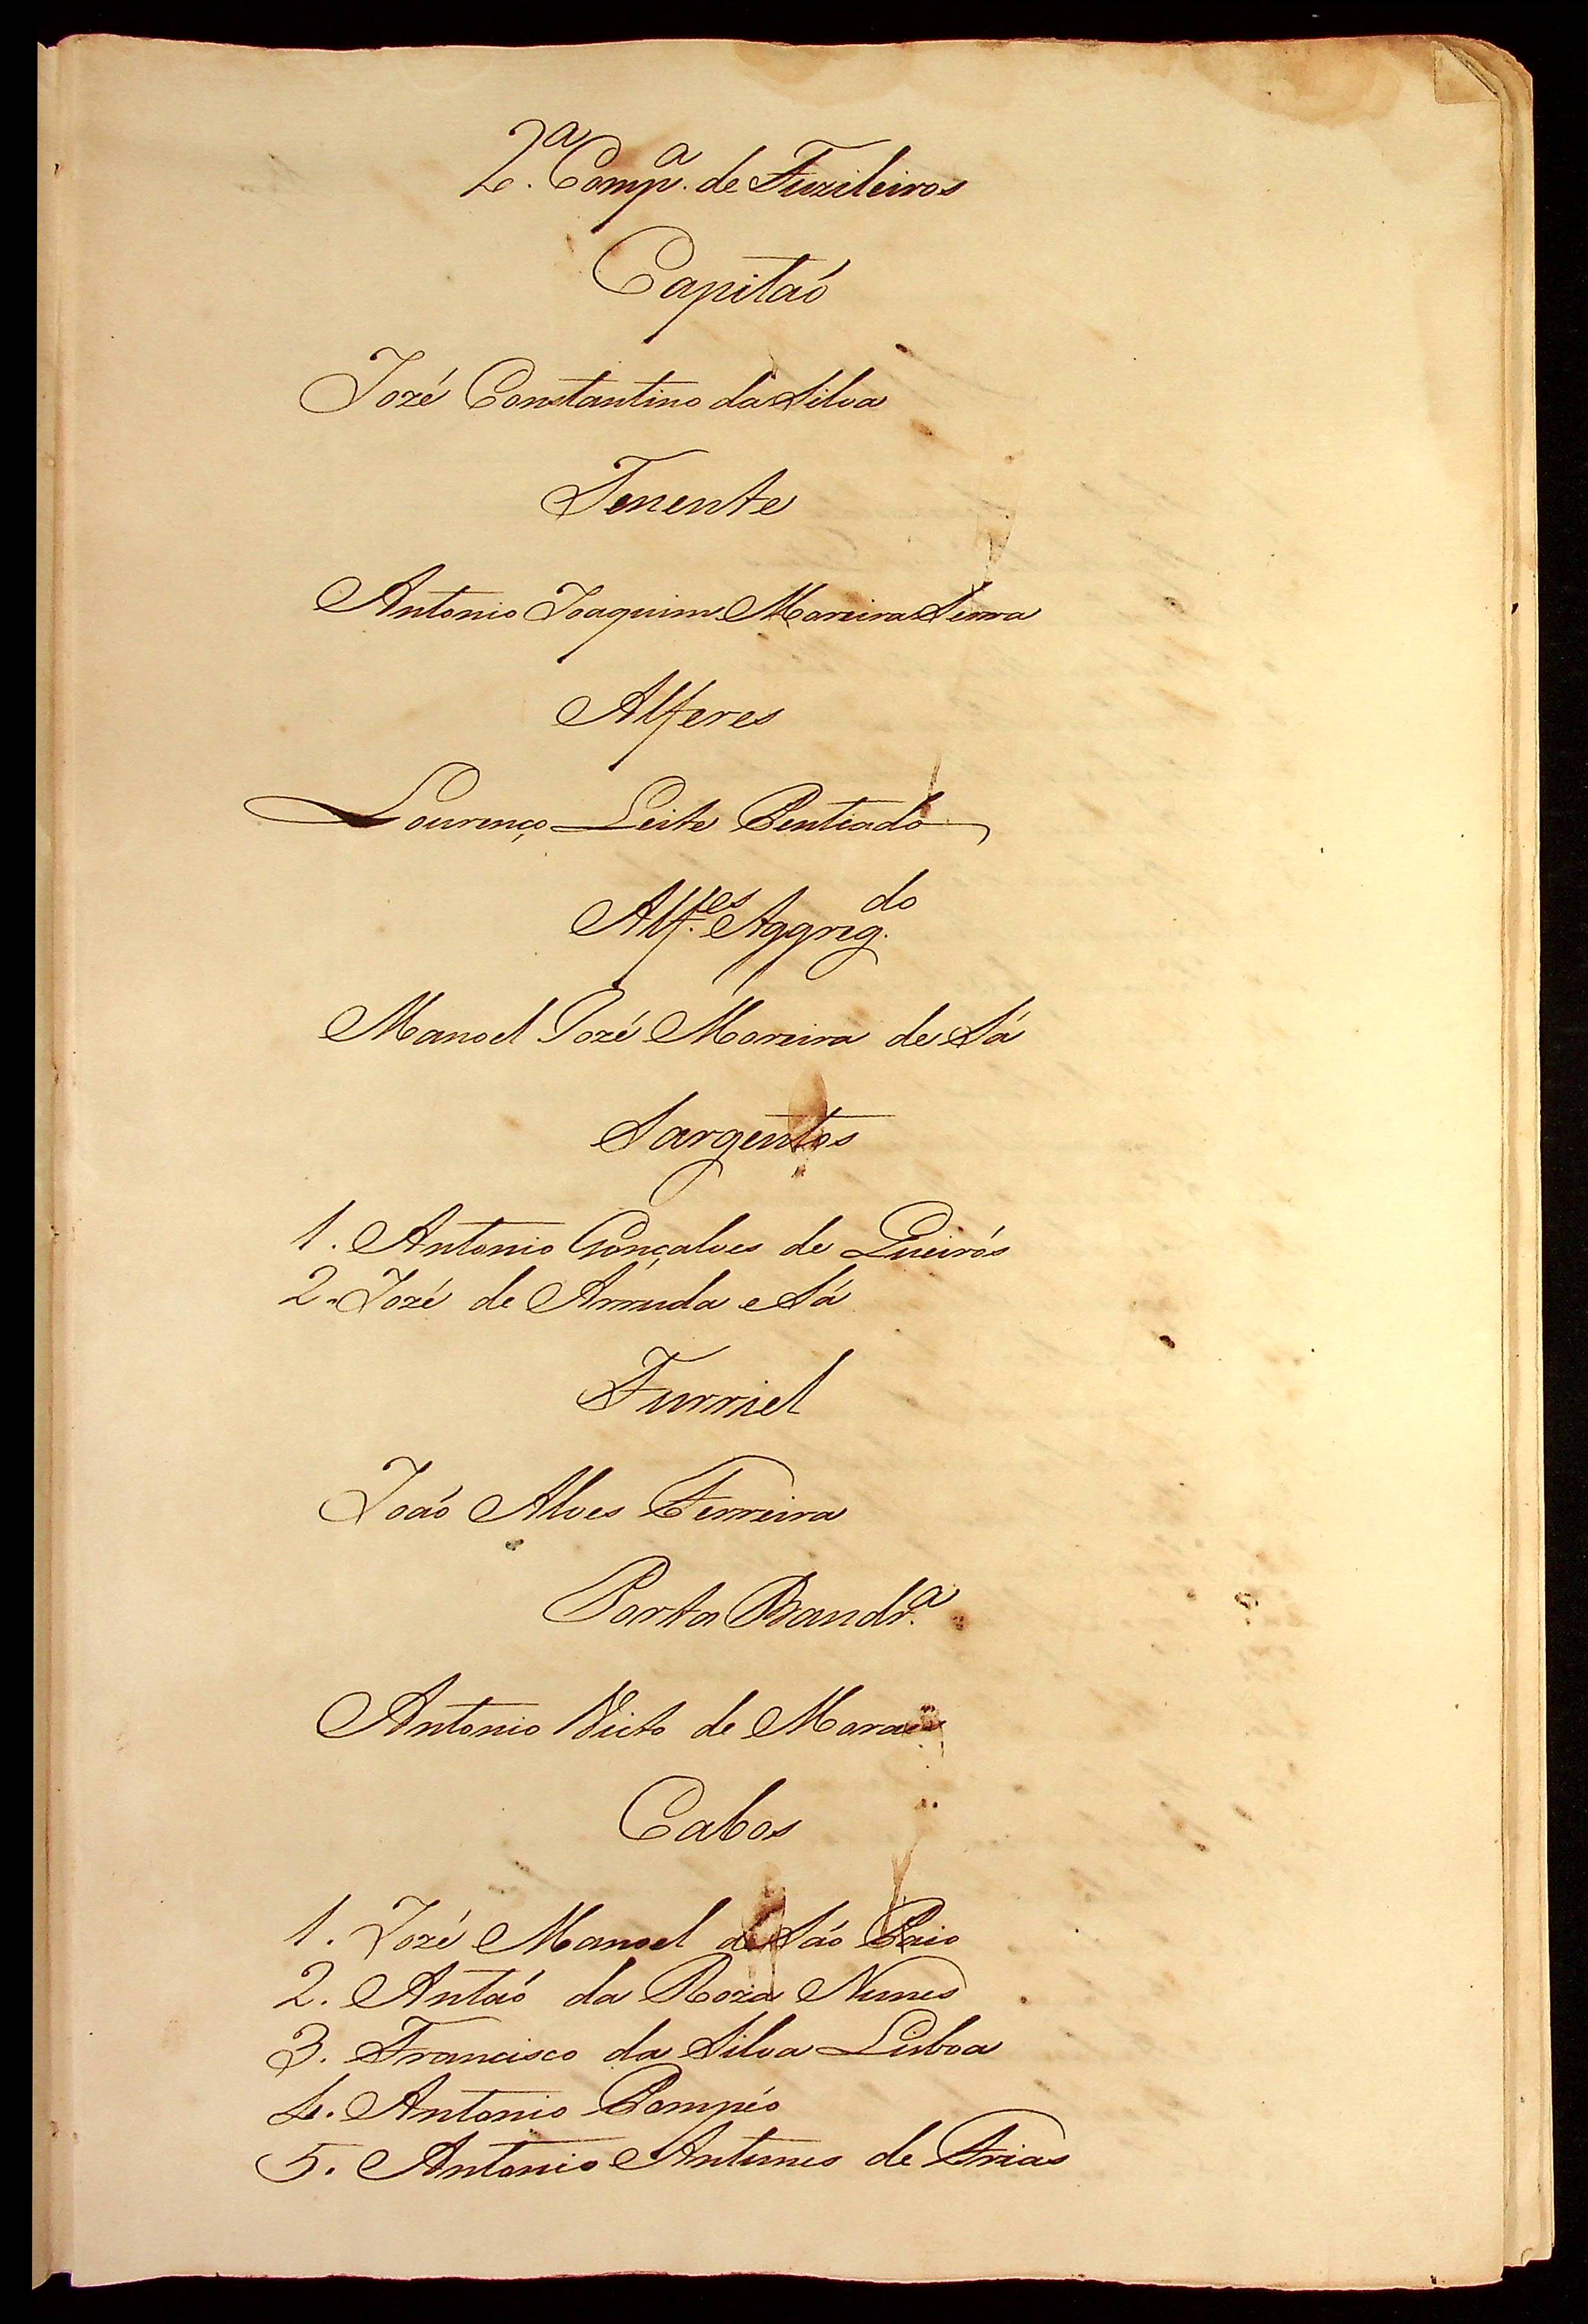 2.ª Comp.ª de Fuzileiros
Capitaó
Jozé Constantino da Silva
Tenente
Antonio Joaquim Moreira Serra
Alferes
Lourenço Leite Pentiado
Alf.es Aggreg.do
Manoel Jozé Moreira de Sá
Sargentos
1. Antonio Gonçalves de Queirós
2. Jozé de Arruda e Sá
Furriel
Joaó Alves Ferreira
Porta Bandr.ª
Antonio de
Cabos
1. Jozé Manoel de Sáo Paio
2. Antaó da Roza Nunes
3. Francisco da Silva Lisboa
4. Antonio Pompéo
5. Antonio Antunes de Frias